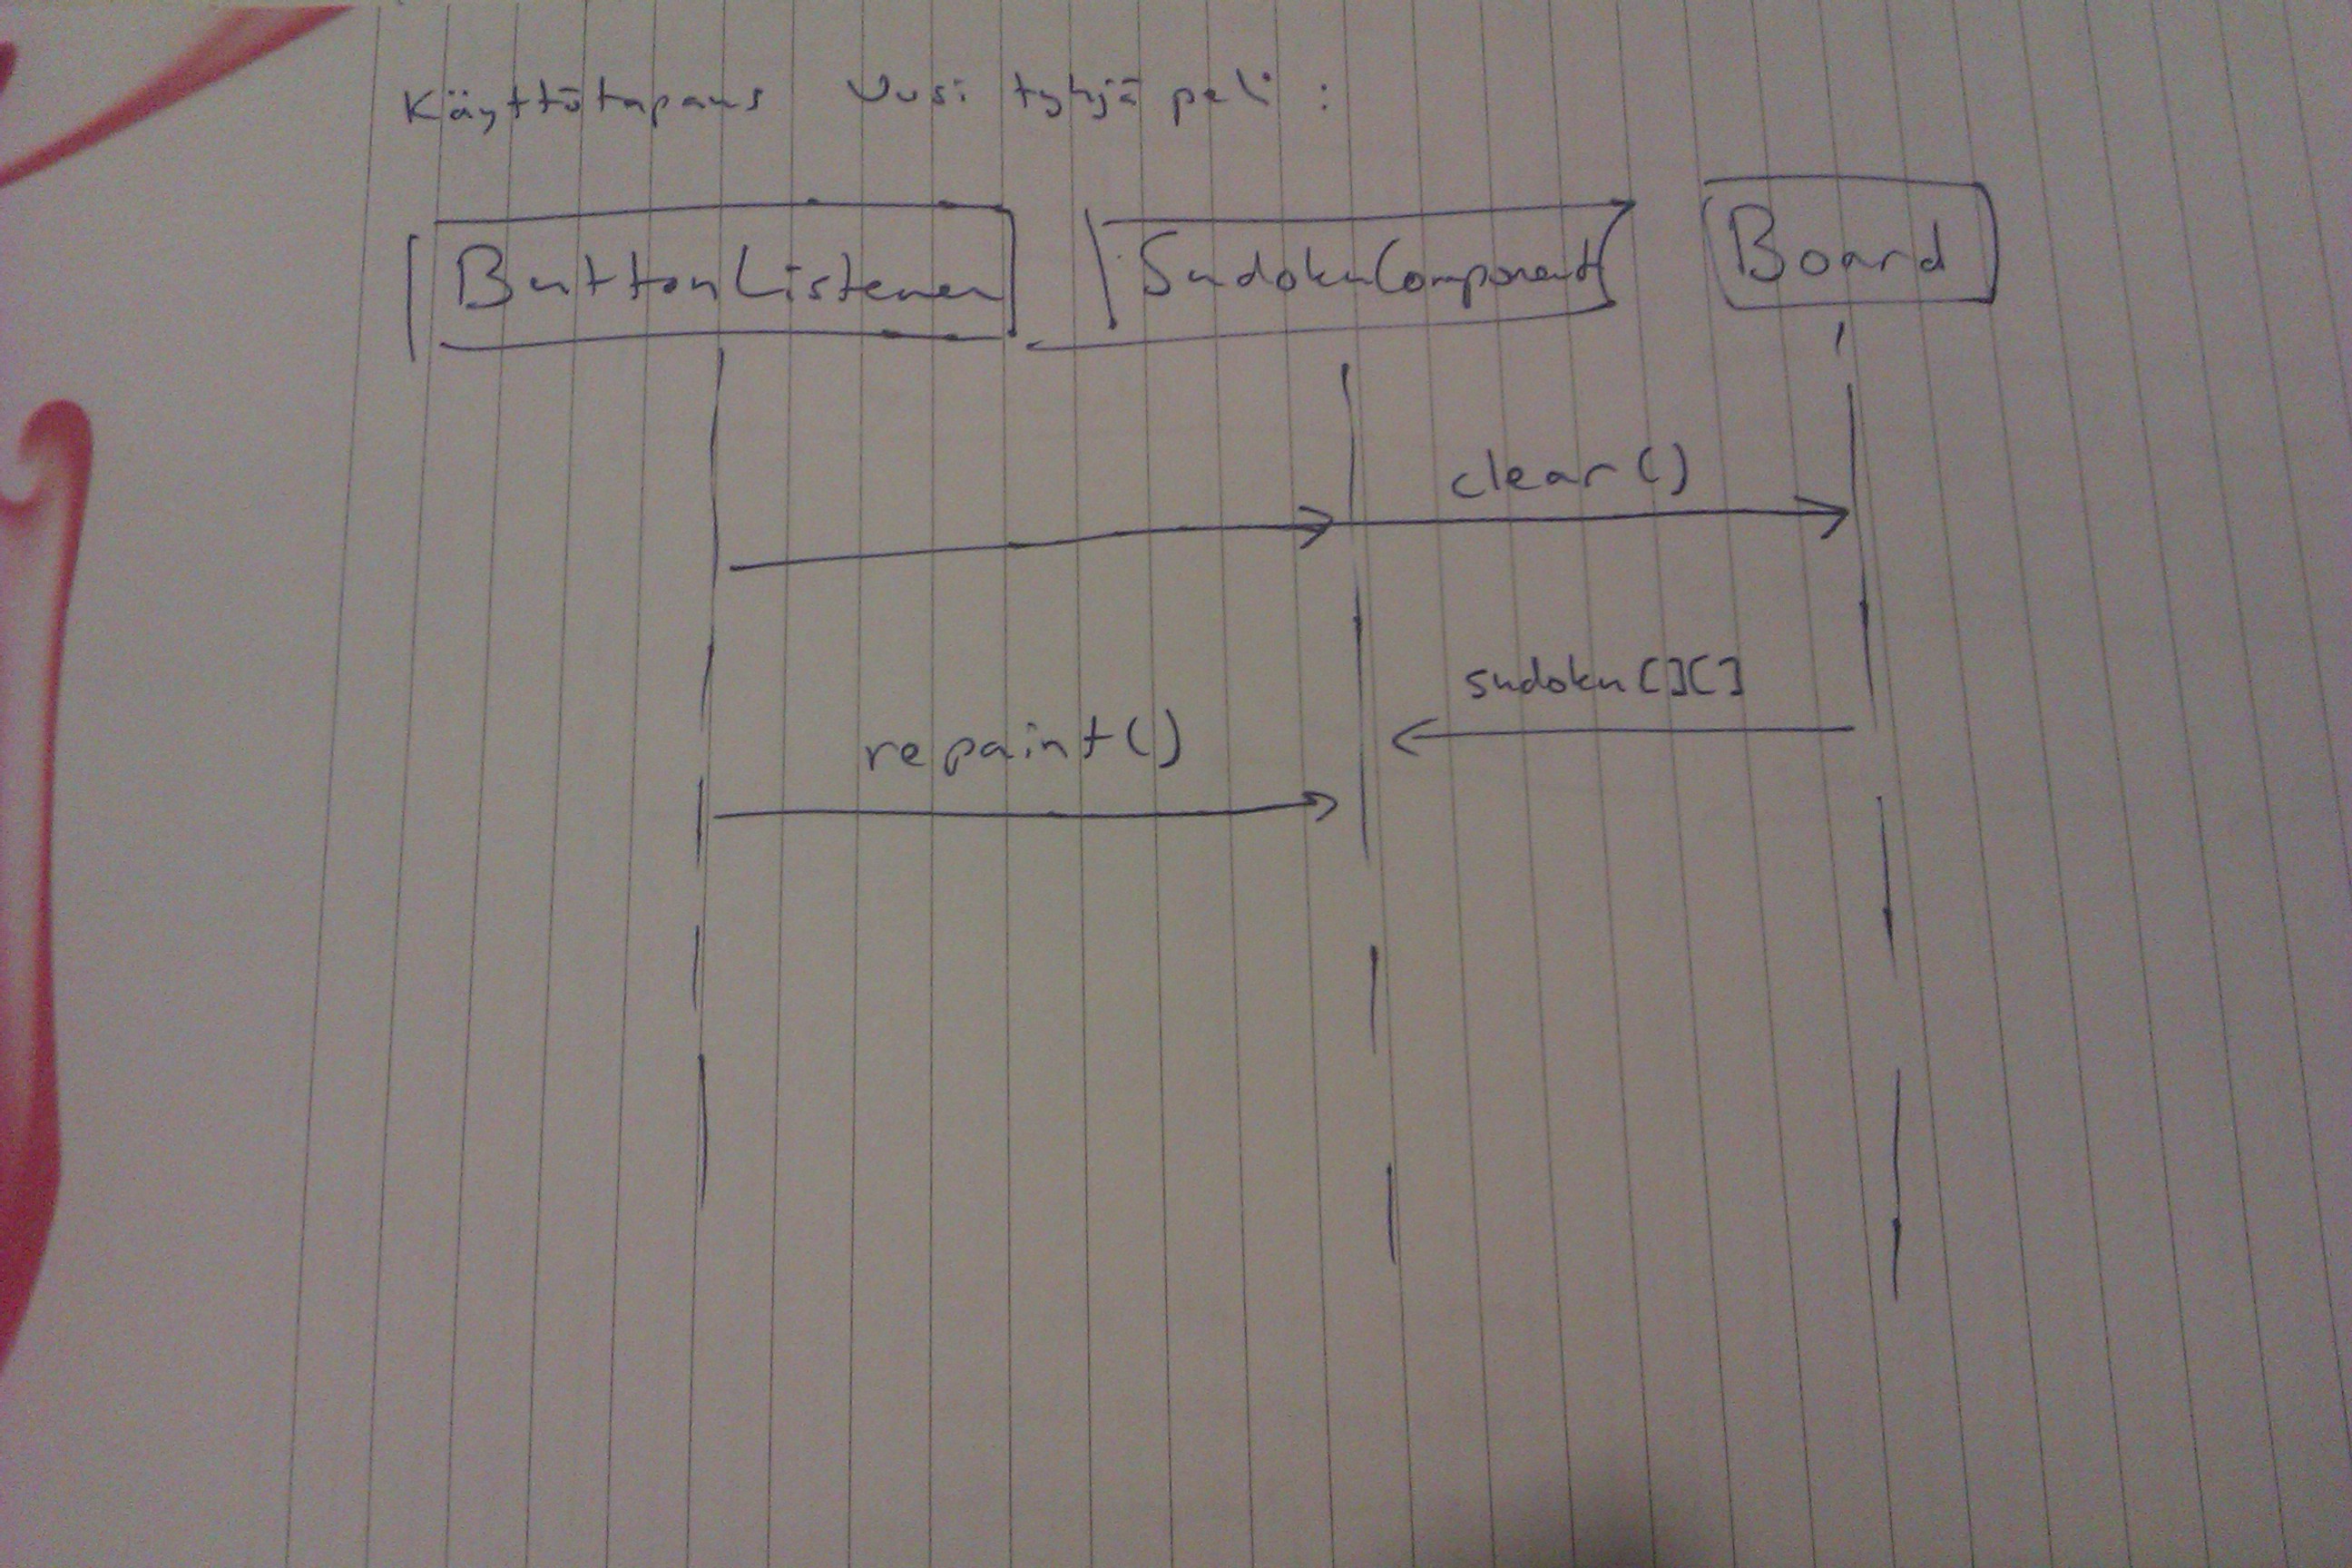 Käyttötapaus Uusi tyhjä peli :
ButtonListener SudokuComponent Board
clear()
sudoku[][]
repaint()